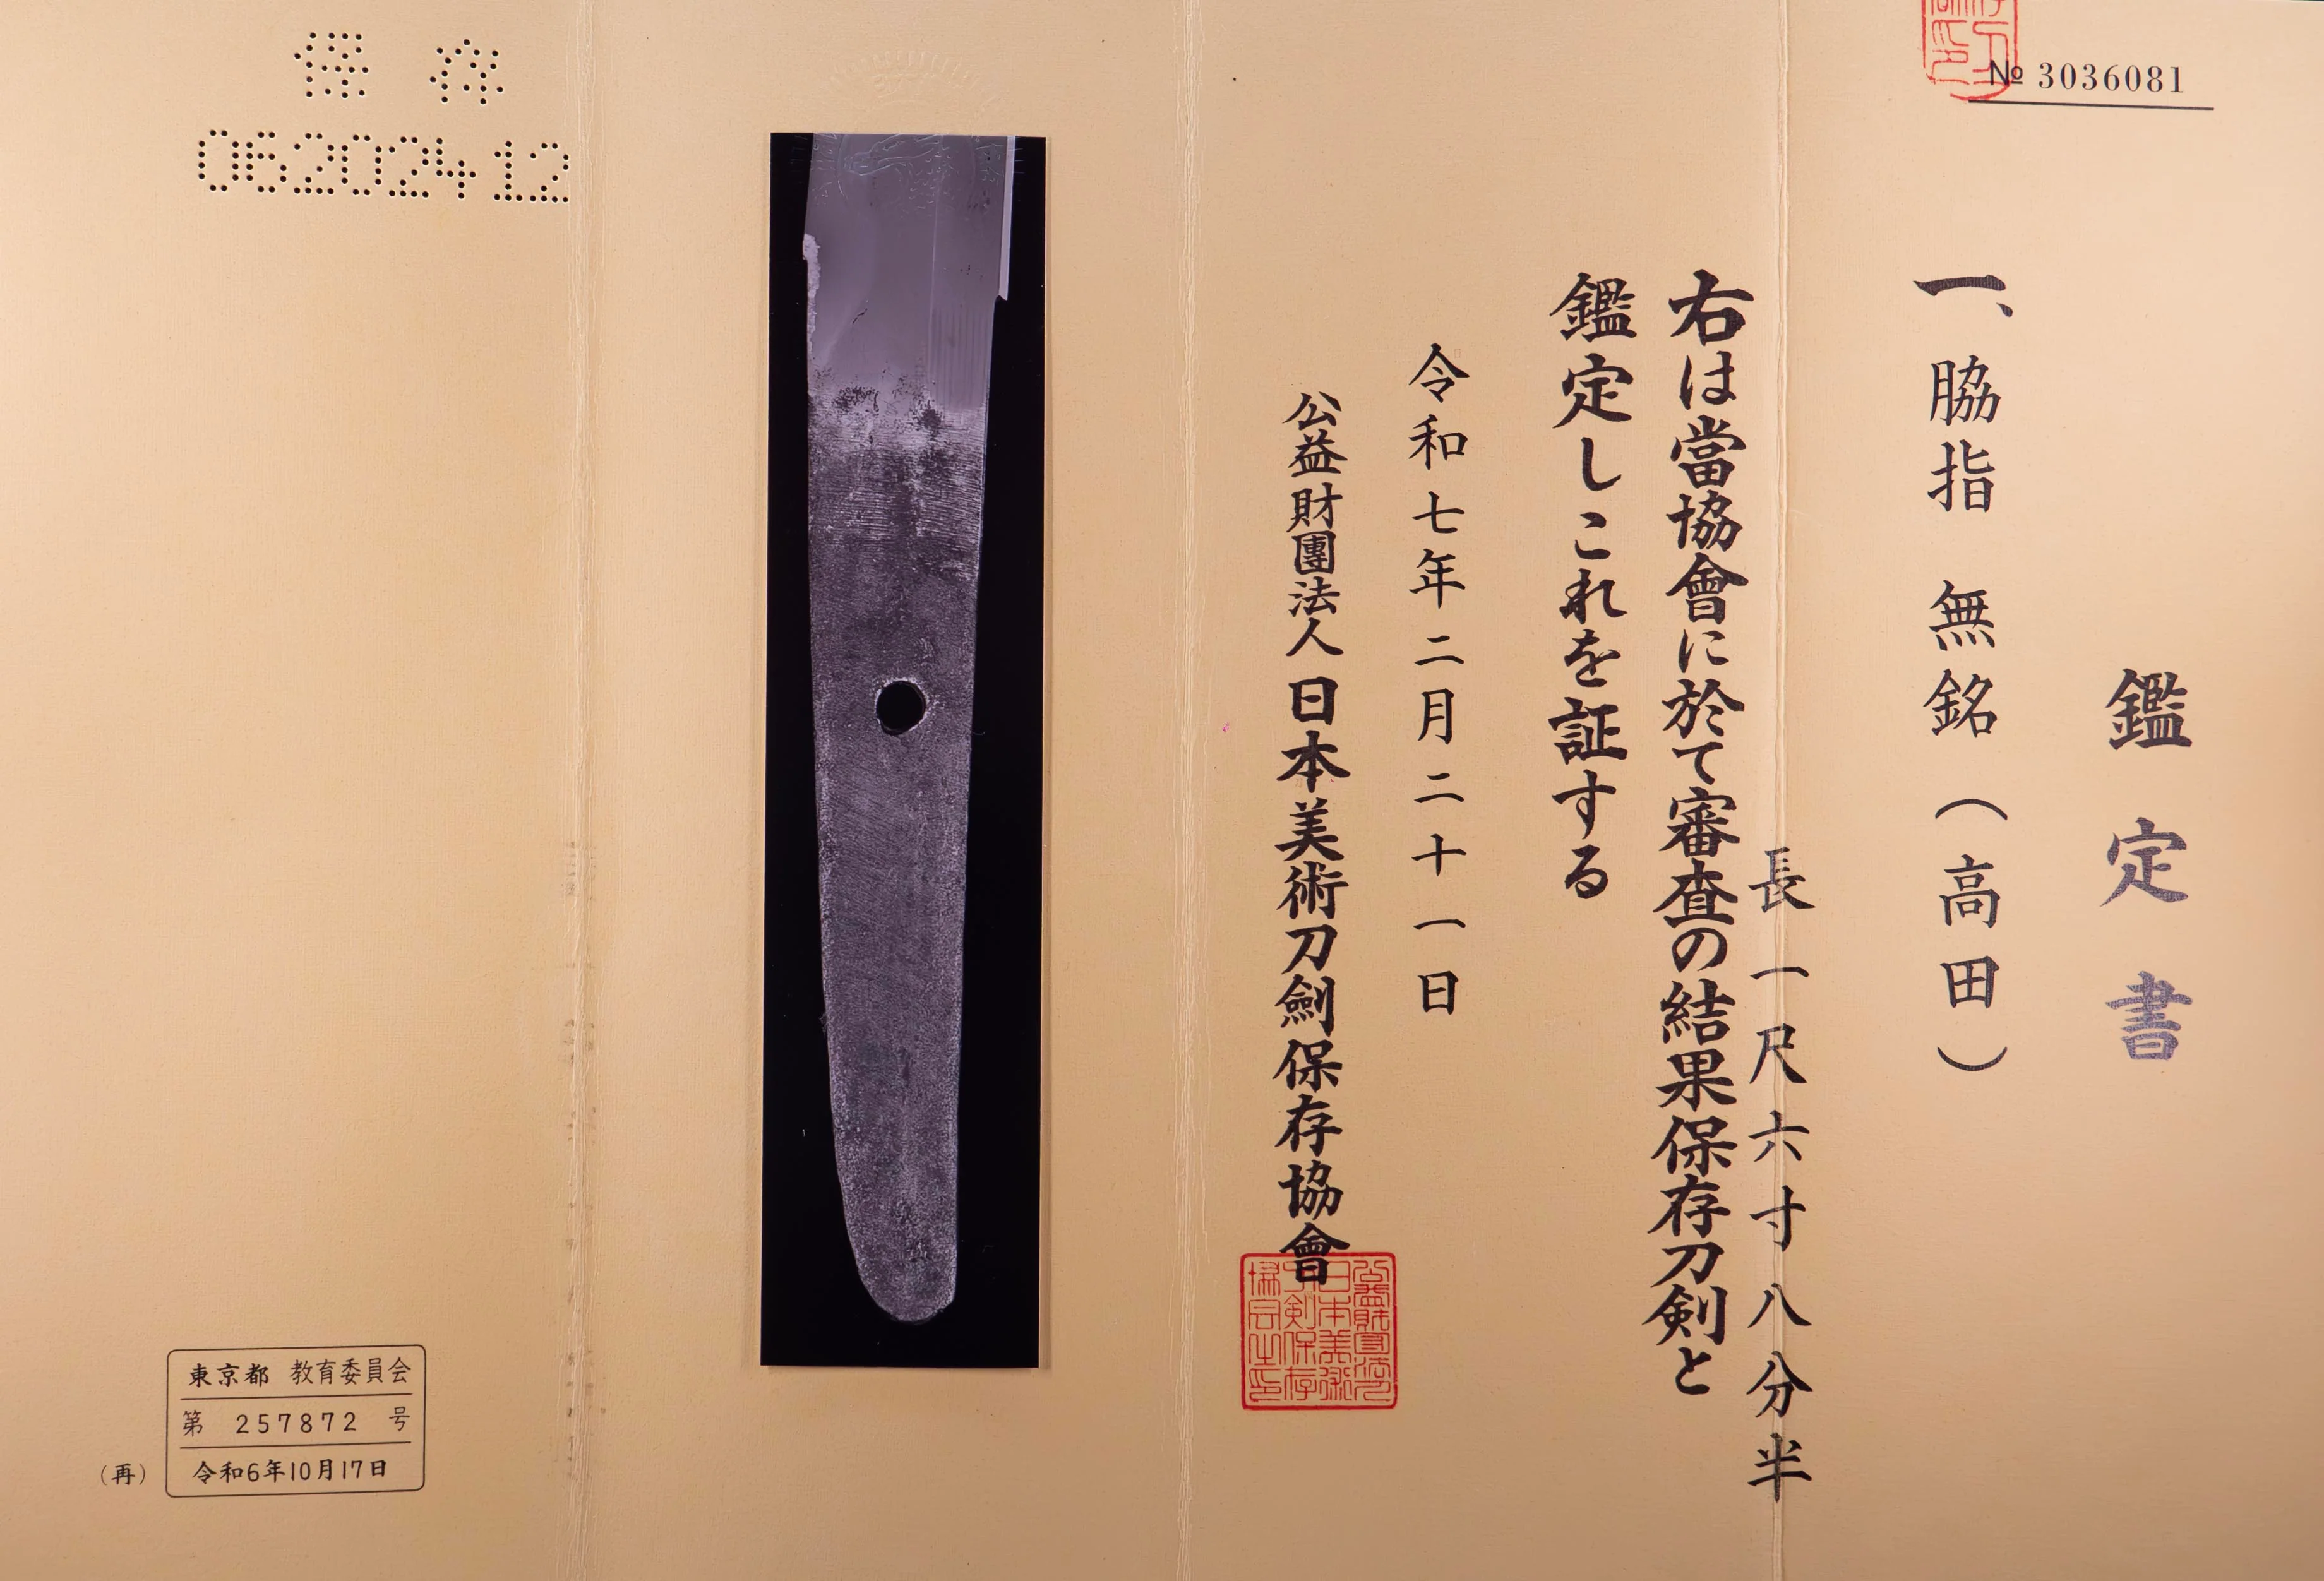 № 3036081
鑑定書
一、脇指 無銘(高田)
長一尺六寸八分半
右は當協會に於て審査の結果保存刀剣と
鑑定しこれを証する
令和七年二月二十一日
公益財團法人日本美術刀劍保存協會
保存
06202412
東京都 教育委員会
第 257872 号
(再) 令和6年10月17日